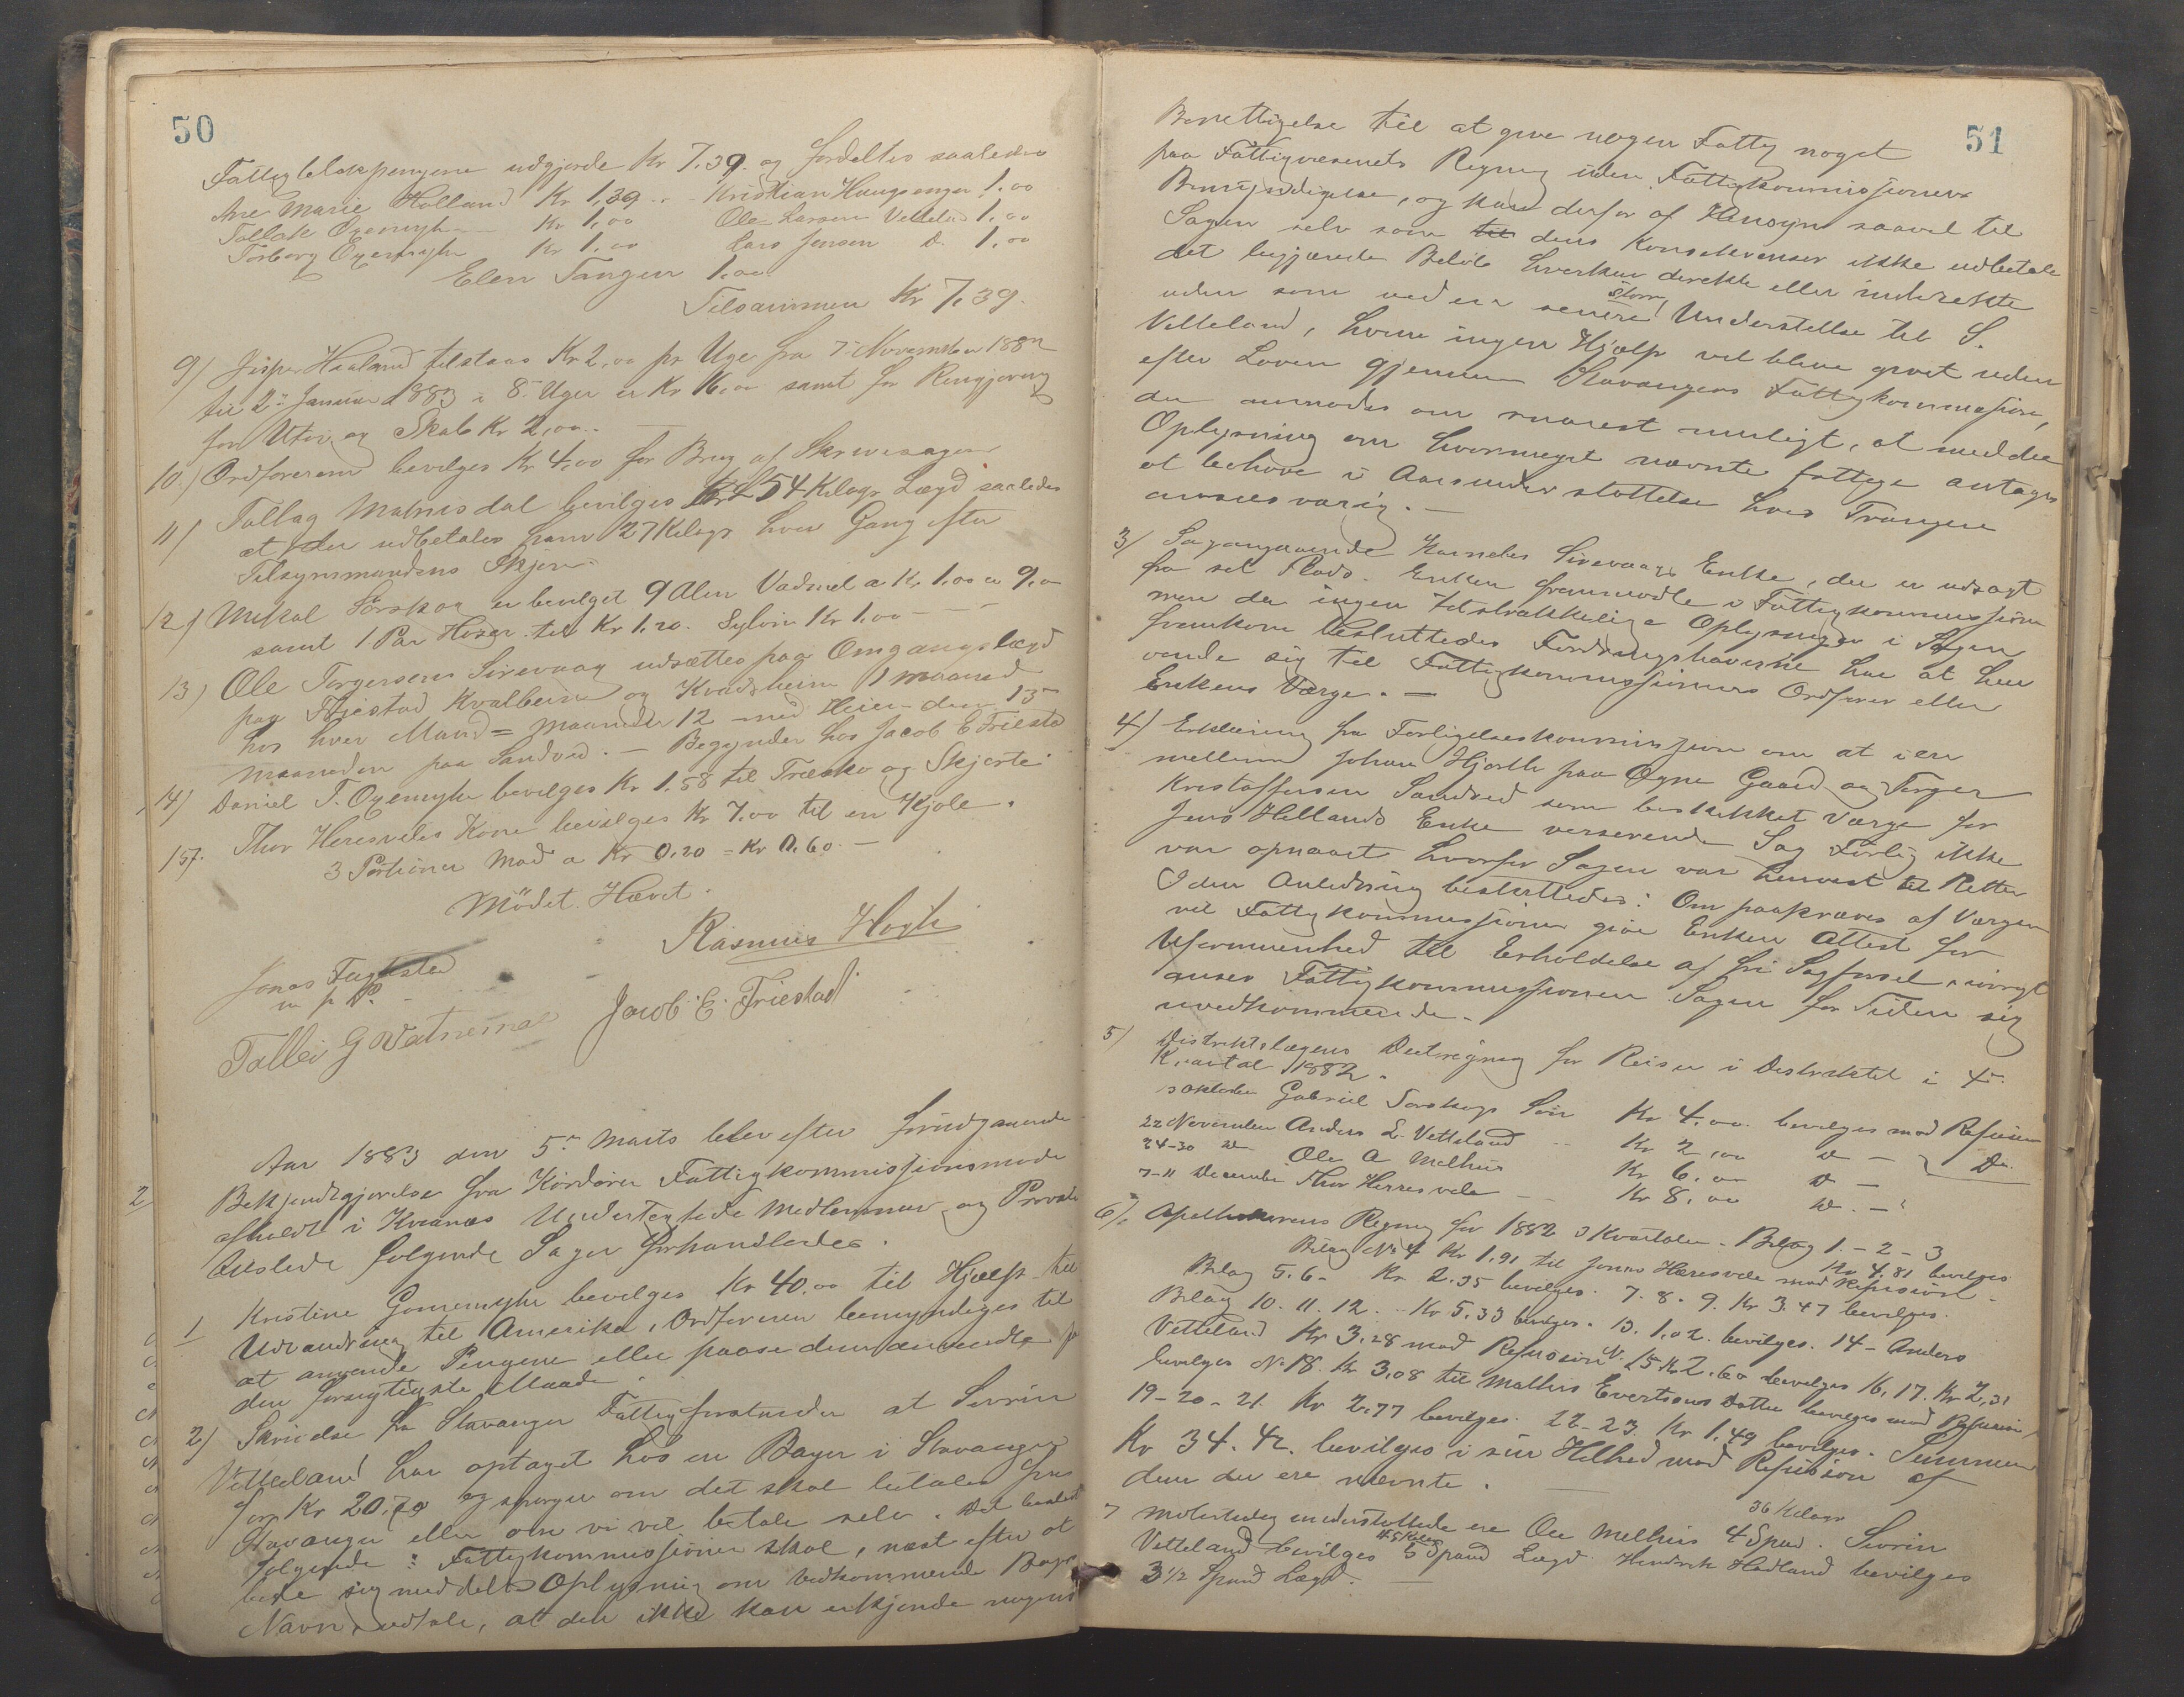 50
Fattigblokpengene udgjorde Kr 7.39. og fordeltes saaledes
Ane Marie Holland Kr 1,39 . - Kristian Haugsenger 1.00
Tollak Oxemyhr Kr 1,00 Ole Larsen Vetteland 1,00
Torborg Oxemyhr Kr 1.00 Lars Jensen D. 1,00
Elen Tangen 1.00
Tilsammen Kr 7,39.
9) Jesper Haaland tilstaaes Kr 2,00 pr Uge fra 7de November 1882
til 2den Januar 1883 i 8. Uger er Kr 16,00 samt for Rengjøring
for Utøi og Skab Kr 2,00. -
10.) Ordføreren bevilges Kr 4,00 for Brug af Skrivesager
11) Tallag Matnisdal bevilges 54 Kilogr Lægd saaledes
at der udbetales ham 27 Kilogr hver Gang efter
Tilsynsmandens Skjøn.
12) Mikal Sørskog er bevilget 9 Alen Vadmel a Kr 1.00 er 9,00
samt 1 Par Hoser til Kr 1.20. Syløn Kr 1,00
13) Ole Torgersens Sirevaag udsættes paa Omgangslægd
paa Friestad Kvalbein og Kvadsheim 1 maaned
hos hver Mand = Maaneder 12 med Heien den 13de
Maaneden paa Sandved. - Begynder hos Jacob E Friestad
14) Daniel T. Oxemyhr bevilges Kr 1.58 til Træsko og Skjorte
15). Thor Heresvelis Kone bevilges Kr 7.00 til en Kjole.
3 Portioner Mad a Kr 0.20 = Kr 0.60 -
Mödet. Hævet.
Rasmus Høgh
Jonas Fuglestad
m p P.
Jacob E. Friestad
Tallei G Vatnemo
Aar 1883 den 5te Marts blev efter forudgaaende
Bekjendtgjørelse fra Kirdøren Fattigkommissionsmøde
afholdt i Kvianes Undertegtede Medlemmer og Provst
tilstede følgende Sager forhandledes.
1 Kristine Gomemyhr bevilges Kr 40.00 til Hjælp til
Udvandring til Amerika, Ordføreren bemyndiges til
at anvende Pengene eller paase dem anvendte paa
den forsvigtigste Maade.
2) Skrivelse fra Stavanger Fattigforstander at Sivrin
Vetteland har optaget hos en Bager i Stavanger
for Kr 20.70 og spørger om det skal betales fra
Stavanger eller om vi vil betale selv. Det besluttet
følgende: Fattigkommissionen skal, næst efter at
bede sig meddelt Oplysning om Vedkommende Bagers
Navn udtale, at den ikke kan erkjende nogens
2
51
Berettigelse til at give nogen Fattig noget
paa Fattigvæsenets Regning uden Fattigkommissionens
Bemyndigelse, og kan derfor af Hensyn saavel til
Sagen selv som til dens Konsekvenser ikke udbetale
det begjærede Beløb hverken direkte eller indirekte
uden som ved en senere større Understøttelse til S.
Vetteland, hvem ingen Hjælp vil blive givet uden
efter Loven gjennem Stavangers Fattigkommission,
der anmodes om snarest muligt, at meddele
Oplysning om hvormeget nævnte fattige antages
at behøve i Aarsunderstøttelse hvis Trangen
ansees varig. -
3) Sag angaaende Karneles Sirevaags Enke, der er udsagt
fra sit Plads. Enken fremmødte i Fattigkommissionen
men da ingen tilstrækkelige Oplysninger i Sagen
fremkom besluttedes Fordringshaverne har at hen
vende sig til Fattigkommissionens Ordfører eller
Enkens Værge. -
4) Erklæring fra Forligelseskommission om at i en
mellem Johan Hjorth paa Ogne Gaard og Torger
Kristoffersen Sandved som beskikket Værge for
Jens Hellands Enke verserende Sag Forlig ikke
var opnaaet hvorfor Sagen var henvist til Retten
I den Anledning besluttedes: Om paakræves af Værgen
vil Fattigkommissionen give Enken Attest for
Uformuenhed til Erholdelse af fri Sagførsel, iøvrigt
anser Fattigkommissionen Sagen for Tiden sig
uvedkommende.
5) Distriktslægens Deelregning for Reiser i Distriktet i 4de
Kvartal 1882.
3 Oktober Gabriel Sørskogs Søn Kr 4,00. bevilges mod Refusion
22 November Anders L. Vetteland -- Kr 2,00 D -
24-30 D Ole A Melhus Kr 6.00 D - Do.
7-11 December Thor Herresvela -- Kr 8.00 D. -
6) Apothekerens Regning for 1882 3 Kvartaler. Bilag 1.-2-3
Kr 4.81 bevilges
Bilag No 4 Kr 1.91 til Jonas Hæresvele mod Refusion -
Bilag 5.6- Kr 2.35 bevilges. 7. 8. 9. Kr 3.47 bevilges.
Bilag 10. 11. 12. - Kr 5,33 bevilges. 13. 1.02. bevilges. 14 - Anders
Vetteland Kr 3.28 mod Refusion N. 15 Kr 2.60 bevilges 16. 17. Kr 2,31
bevilges No 18. Kr 3,08 til Mathis Evertsens Datter bevilges mod Refusion,
19-20-21. Kr 2.77 bevilges. 22-23. Kr 1.49 bevilges. Summen
Kr 34.42. bevilges i sin Helhed mod Refusion af
dem der ere nævnte.
7 Midlertidig understøttede ere Ole Melhus 4 Spand. 36 Kilogr Sivrin
Vetteland bevilges 5 Spand 45 Kilogr Lægd. Hendrik Hadland bevilges
3 1/2 Spand Lægd. -